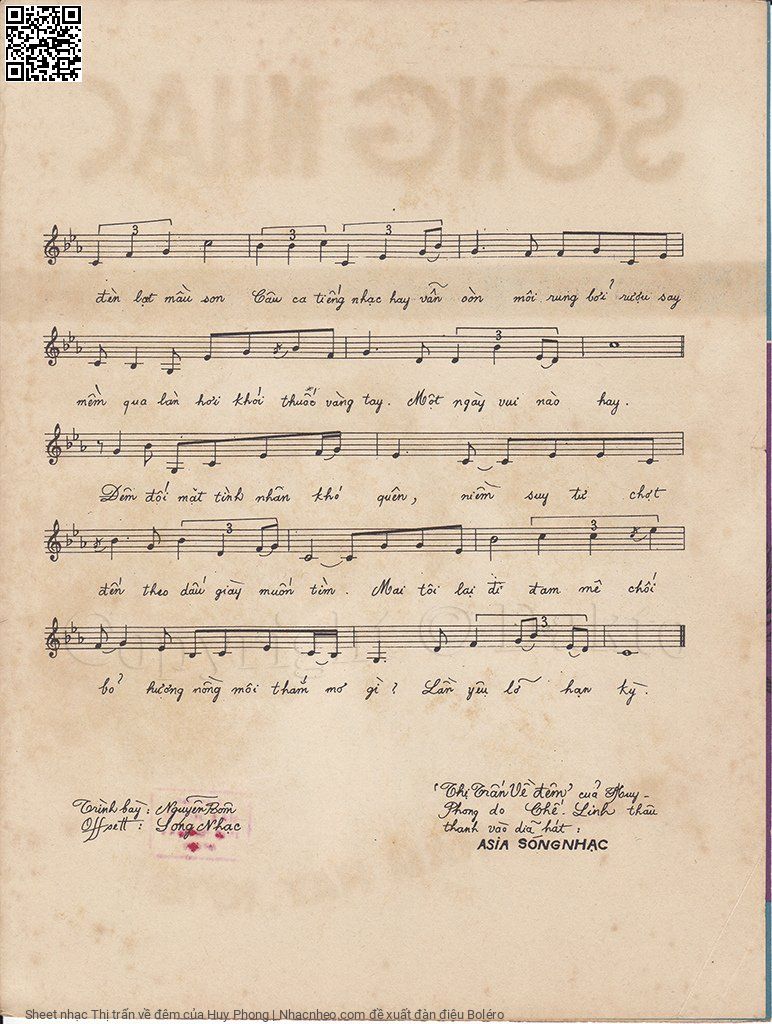 SÓNG NHẠC
đèn bạt mầu son Câu ca tiếng nhạc hay vẫn còn môi rung bởi rượu say
mềm qua làn hơi khói thuốc vàng tay. Một ngày vui nào hay.
Đêm đối mặt tình nhân khó quên, niềm suy tư chợt
đến theo dấu giày muốn tìm. Mai tôi lại đi đam mê chối
bỏ hương nồng môi thắm mơ gì? Lần yêu lỡ hạn kỳ.
Trình bày: Nguyễn Bôn
Offsett: Sóng Nhạc
"Thị Trấn Về đêm" của Huy-
Phong do Chế-Linh thâu
thanh vào dĩa hát:
ASIA SÓNGNHẠC
Sheet nhạc Thị trấn về đêm của Huy Phong | Nhacnheo.com đề xuất đàn điệu Boléro